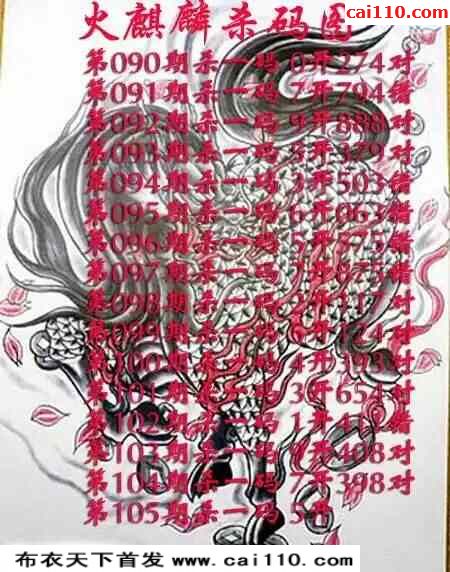 cai110.com
火麒麟杀码图
第090期杀一码 0开274对
第091期杀一码 7开794错
第092期杀一码 9开888对
第093期杀一码 开379对
第094期杀一码 3开503错
第095期杀一码 6开063错
第096期杀一码 5开 错
第097期杀一码 开875错
第098期杀一码 开117对
第099期杀一码 开124对
第100期杀一码 4开393对
第101期杀一码 3开654对
第102期杀一码 1开 错
第103期杀一码 开408对
第104期杀一码 7开398对
第105期杀一码 5开
布衣天下首发 www.cai110.com